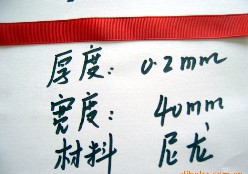 厚度: 0.2mm
宽度: 40mm
材料 尼龙